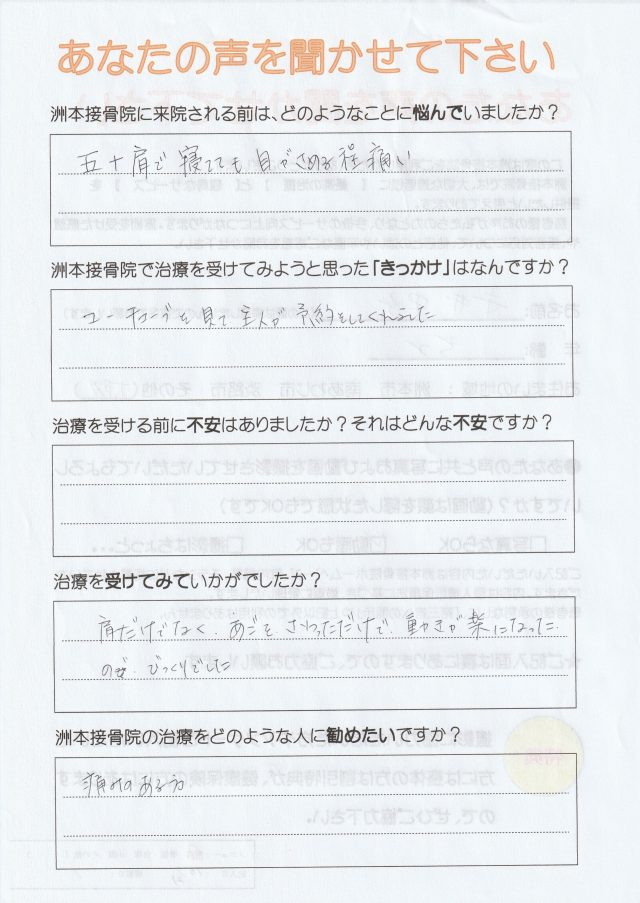 あなたの声を聞かせて下さい
洲本接骨院に来院される前は、どのようなことに悩んでいましたか？
五十肩で寝てても目がさめる程痛い
洲本接骨院で治療を受けてみようと思った「きっかけ」はなんですか？
ユーチューブを見て主人が予約をしてくれました
治療を受ける前に不安はありましたか？それはどんな不安ですか？
治療を受けてみていかがでしたか？
肩だけでなくあごをさわっただけで動きが楽になった
ので、びっくりでした
洲本接骨院の治療をどのような人に勧めたいですか？
痛みのある方